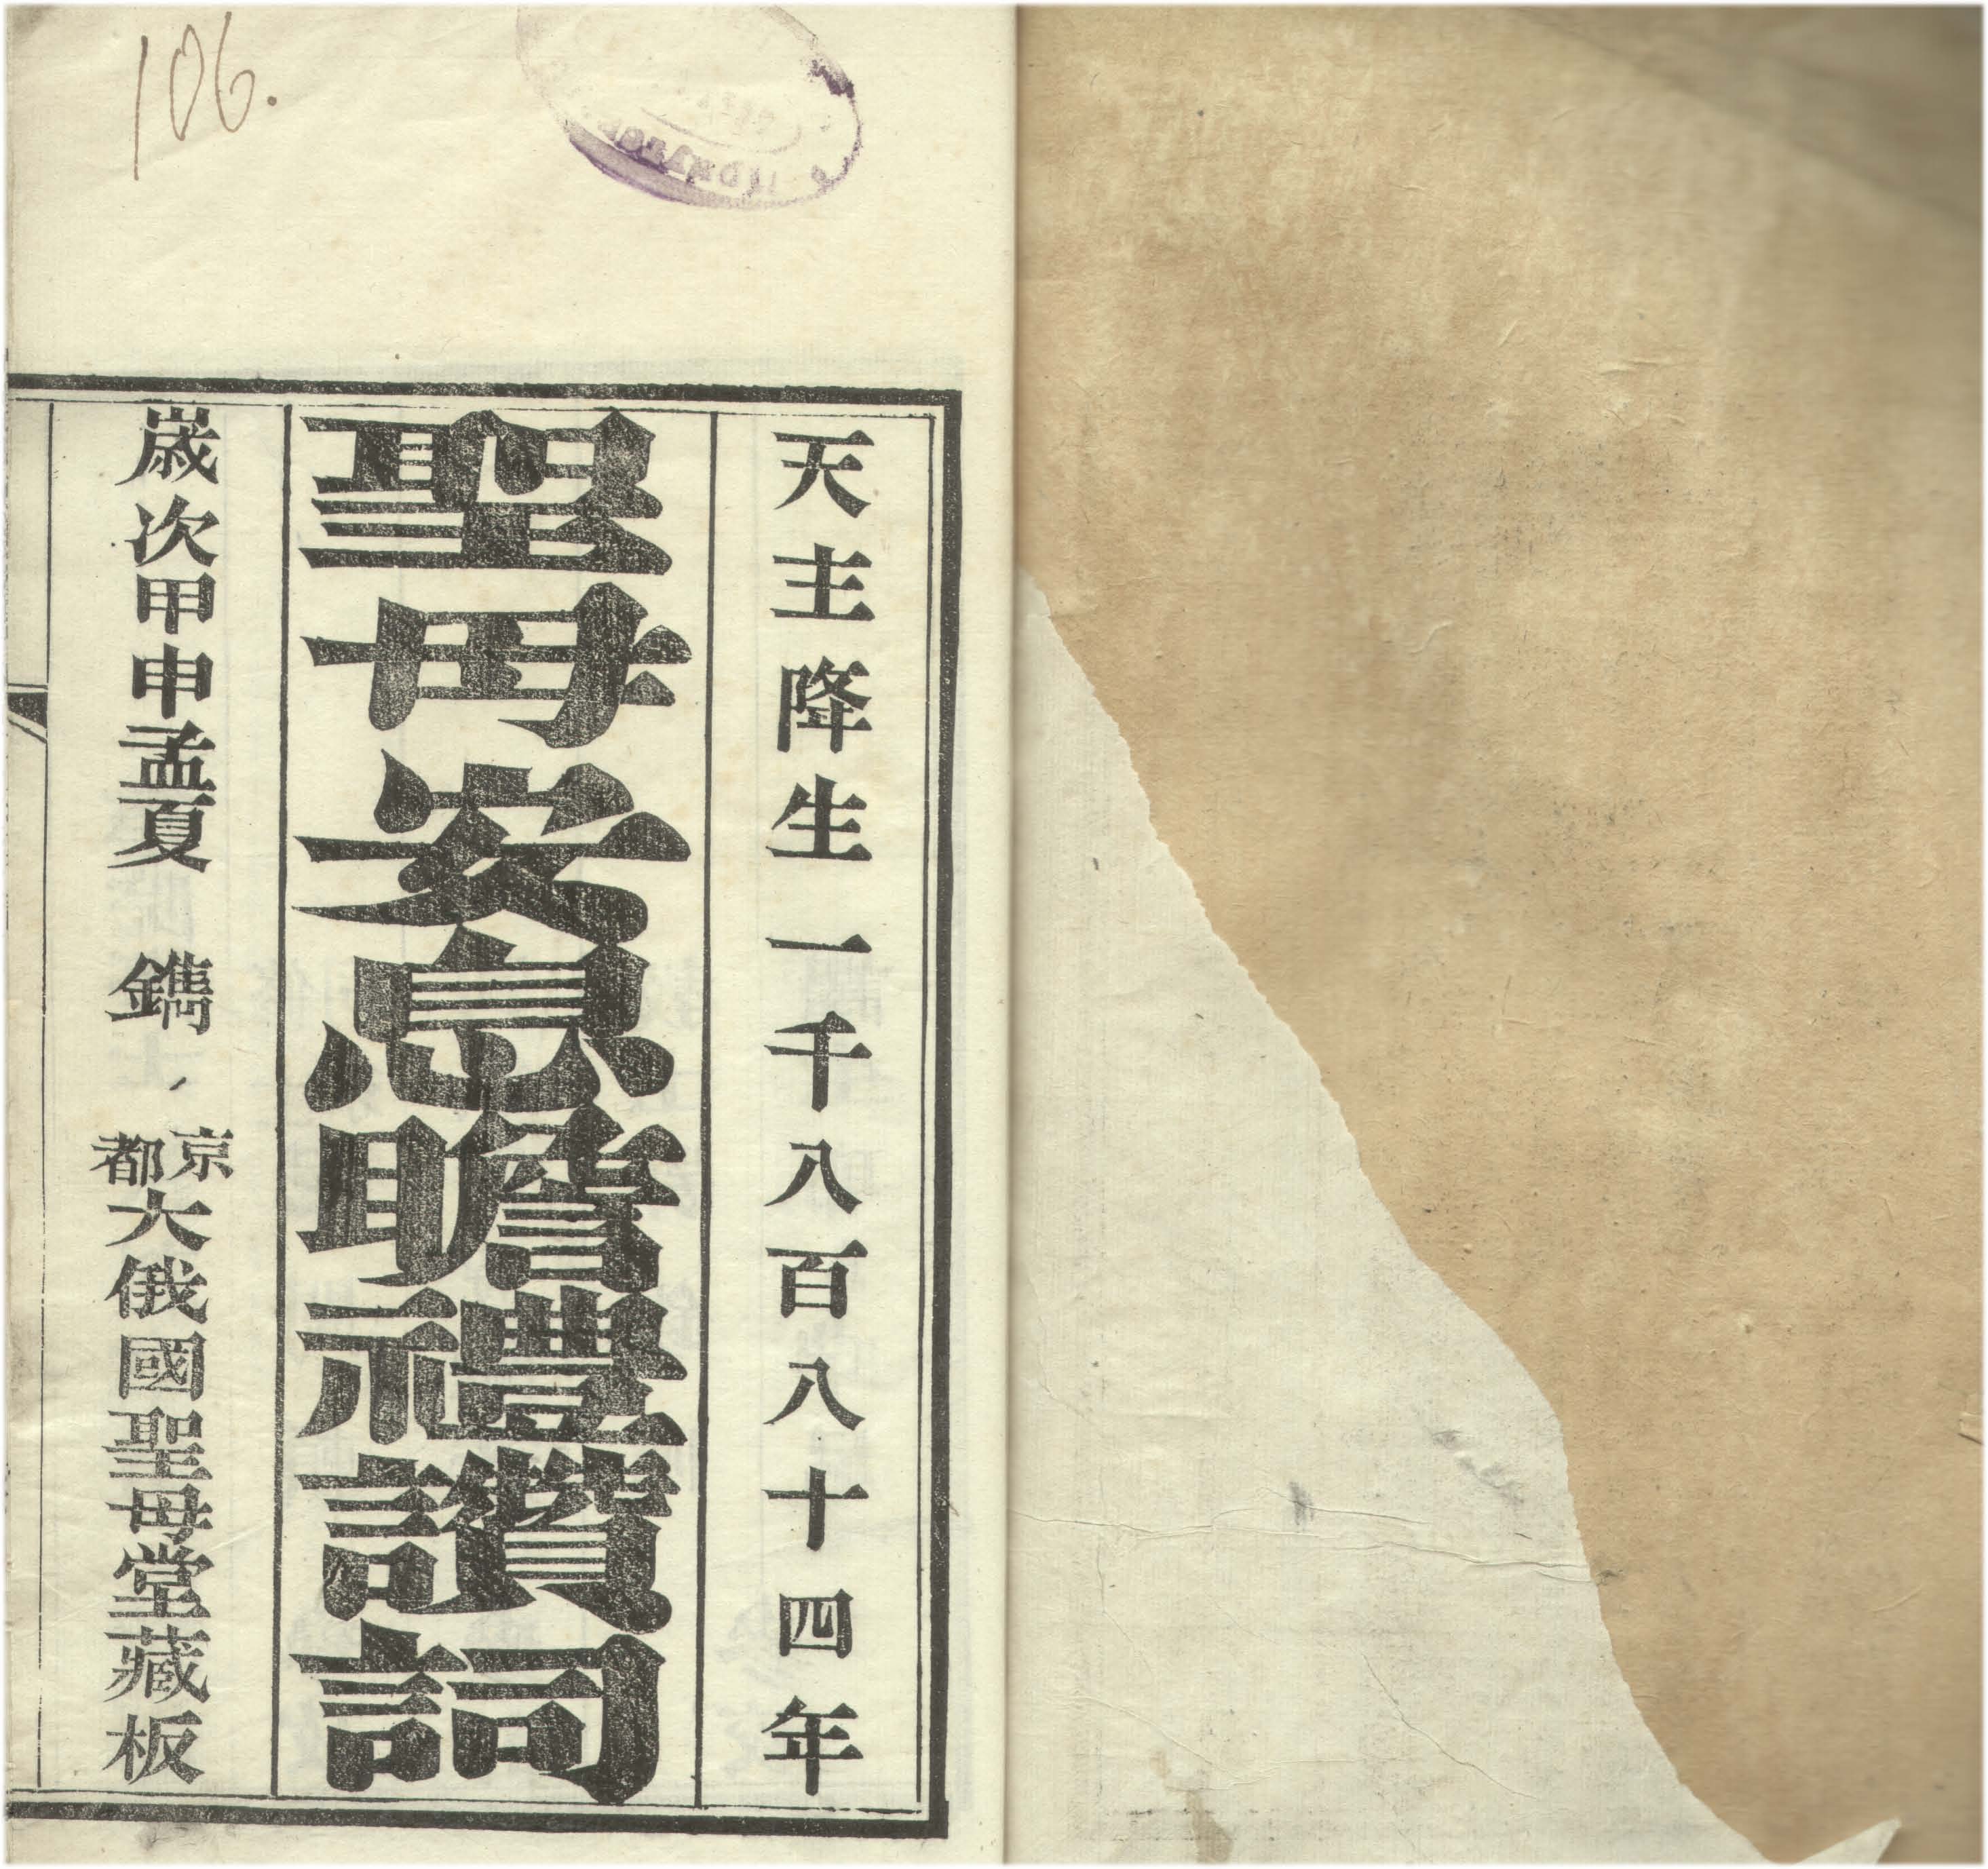 106.
天主降生一千八百八十四年
聖母安息瞻禮讚詞
歲次甲申孟夏 鐫 京都大俄國聖母堂藏板